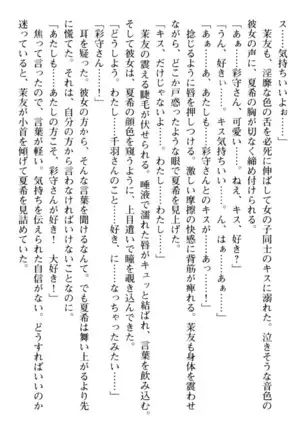 ス気持ちいいよぉ……」
　茉友も、淫靡な色の舌を必死に伸ばして女の子同士のキスに溺れた。泣きそうな音色の
彼女の声に、夏希の胸が切なく締め付けられる。
「あぁ……あ、彩守さん、可愛い……。ねえ、キス、好き？」
「うん、好きぃ……。キス気持ちいい……。ん、はぁ……あぁ」
「あぁ、あ、あたしも……彩守さんとのキスが……あっ……！」
　捻じるように唇を押しつける。激しい摩擦の快感に背筋が痺れる。茉友も身体を震わせ
ながら、どこか戸惑ったような眼で夏希を見上げた。
「どうしよう。わたし……千羽さんのこと……好き、に……なっちゃったみたい……」
　そして彼女は、夏希の顔色を窺うように、上目遣いで瞳を覗き込んできた。
　茉友の震える睫毛が伏せられる。唾液で濡れた唇がキュッと結ばれ、言葉を飲み込む。
　耳を疑った。彼女の方から、そんな言葉を聞けるなんて。でも夏希は舞い上がるより先
に慌てた。それは、自分の方から言わなければいけないことなのに。
「あたしも……あたしの方こそ、彩守さんが好き！　大好き！」
　焦って言ったので、言葉が軽い。気持ちを伝えられた自信がない。どうすればいいのか
迷っていると、茉友が小首を傾げて夏希を見詰めていた。